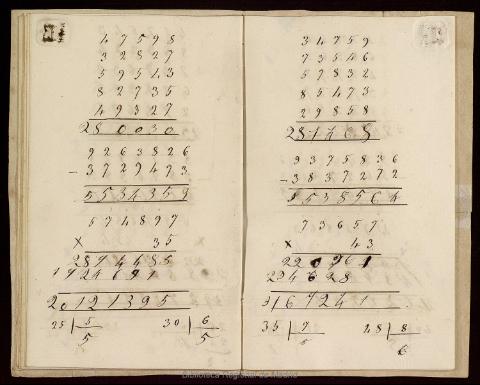 47598
32827
59513
82735
49327
280030
9263826
- 3729473
5534359
574897
× 35
2874485
1724691
20121395
25 | 5
5
30 | 6
5
34759
73546
57832
85473
29858
281468
9375836
- 3837272
5538564
73657
× 43
220961
294628
3167241
35 | 7
5
48 | 8
6
Biblioteca Regional de Madrid